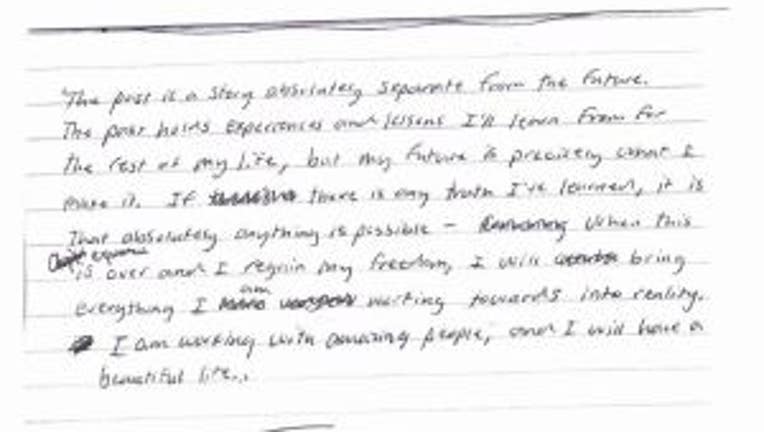 The past is a story absolutely separate from the future.
The past holds experiences and lessons I'll learn from for
the rest of my life, but my future is precisely what I
make it. If there is any truth I've learned, it is
that absolutely anything is possible - When this
is over and I regain my freedom, I will bring
everything I am working towards into reality.
I am working with amazing people, and I will have a
beautiful life...